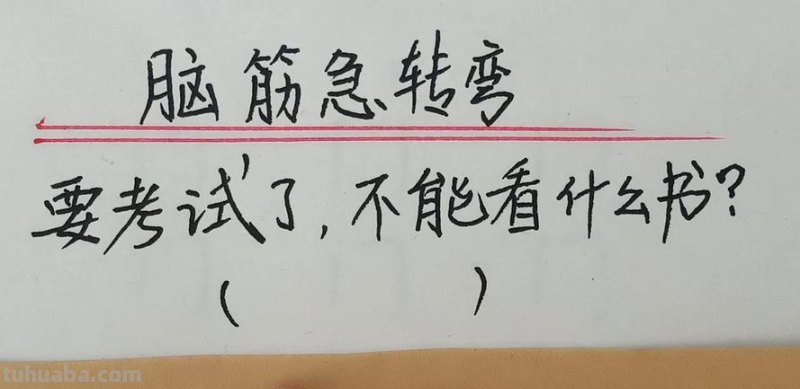 脑筋急转弯
要考试了,不能看什么书?
( )
tuhuaba.com